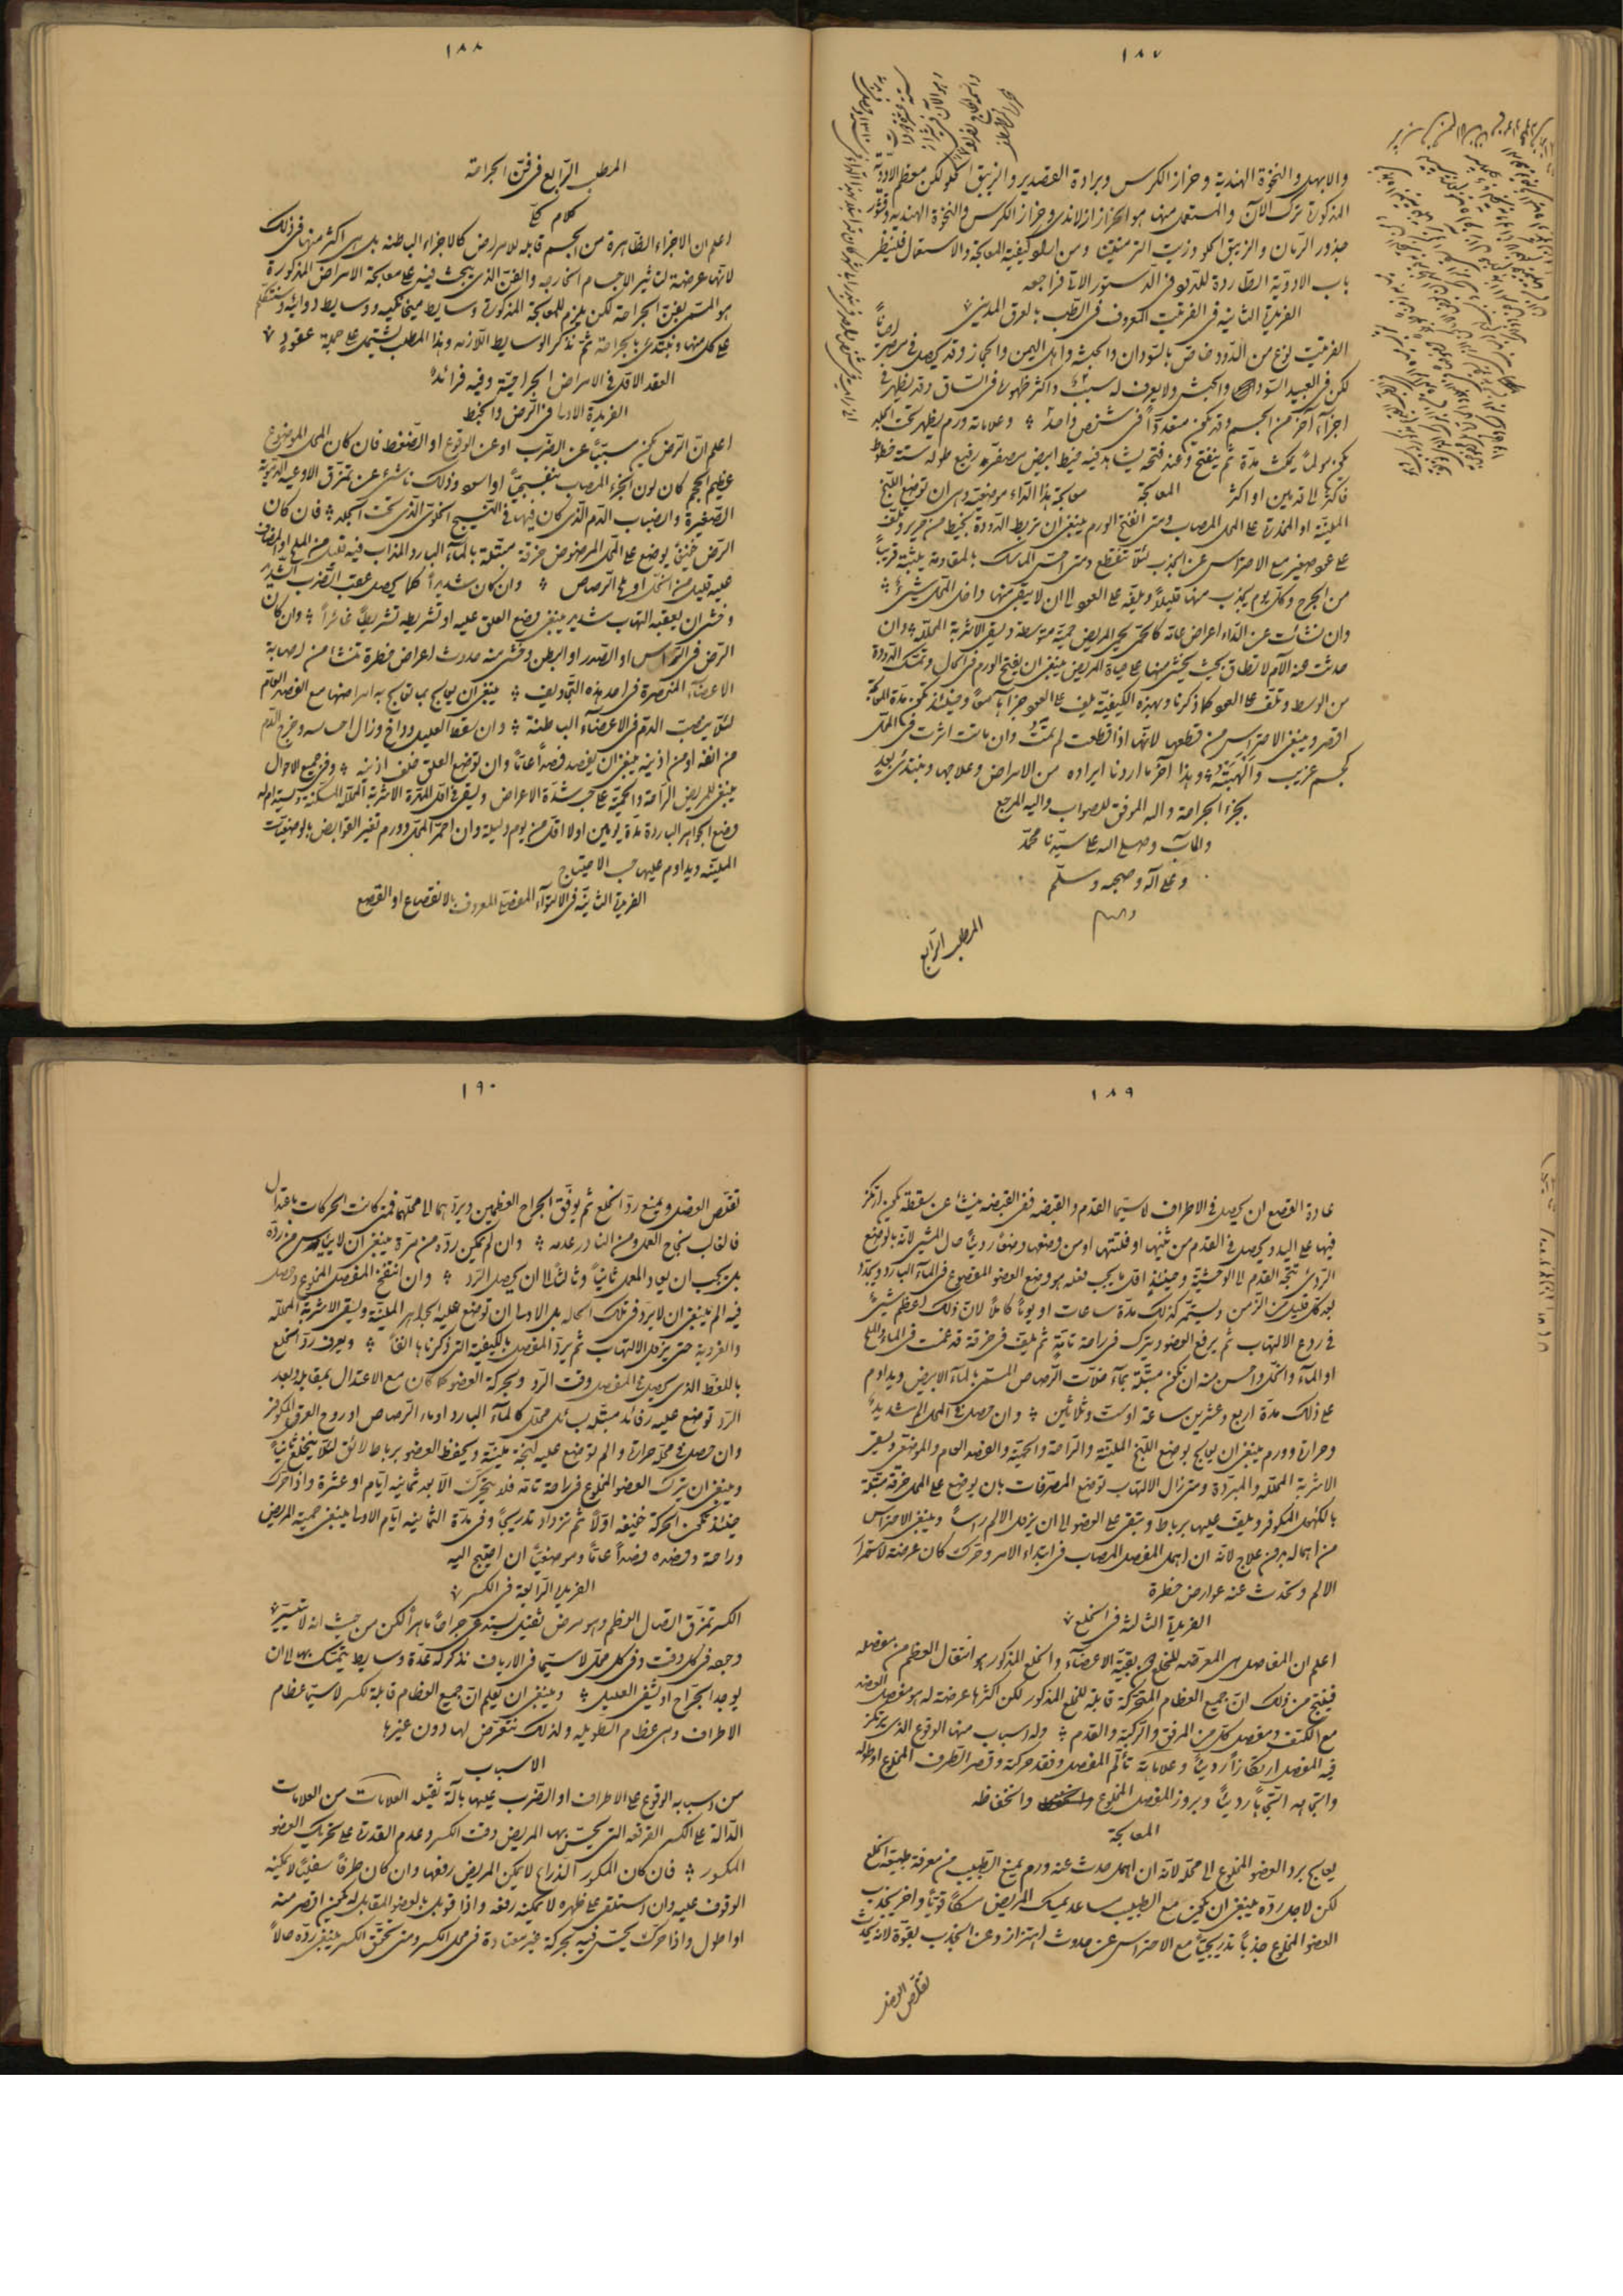 ١٨٧
والابهل والنخوة الهندية وحزاز الكرس وبرادة القصدير والزيبق الحلو لكن معظم الادوية
المذكورة ترك الآن والمستعمل منها هو الحزاز ازلاندي وحزاز الكرس والنخوة الهندية وقشور
جذور الرمان والزيبق الحلو وزيت الترمنتينا ومن اراد كيفية المعالجة والاستعمال فلينظر
باب الادوية الطاردة للدود في الدستور الاتي فراجعه
الفريدة الثانية في الفرتيت المعروف في الطب بالعرق المديني
الفرتيت نوع من الدود خاص بالسودان والحبشة واهل اليمن والحجاز وقد يحصل في مصر ايضاً
لكن في العبيد السودان والحبش ولا يعرف له سبب واكثر ظهوره في الساق وقد يظهر في
اجزاء اخر من الجسم وقد يكون متعدداً في شخص واحد وعلاماته ورم يظهر تحت الجلد
يكون مولماً يمكث مدة ثم ينفتح وعند فتحه يشاهد فيه خيط ابيض بصفرة رفيع طوله ستة خطوط
فاكثر الى قدمين او اكثر المعالجة معالجة هذا الداء موضعية وهي ان توضع اللبخ
الملينة او المخدرة على المحل المصاب ومتى انفتح الورم ينبغي ان تربط الدودة بخيط من حرير وتلف
على عود صغير مع الاحتراس عن الجذب لئلا تنقطع ومتى احس الماسك بالمقاومة يثبته قريباً
من الجرح وكل يوم يجذب منها قليلاً ويلفه على العود الى ان لا يبقى منها داخل المحل شيئ
وان نشأت عن الداء اعراض عامة كالحمى يحمى المريض حمية متوسطة ويسقى الاشربة المحللة وان
حدثت منه الآم لا تطاق بحيث يخشى منها على حياة المريض ينبغي ان يفتح الورم في الحال وتمسك الدودة
من الوسط وتلف على العود كما ذكرنا وبهذه الكيفية يلف على العود جزآها معاً وحينئذ تكون مدة المعالجة
اقصر وينبغي الاحتراس من قطعها لانها اذا قطعت لم تمت وان ماتت اثرت في المحل
كجسم غريب والهبته وهذا آخر ما اردنا ايراده من الامراض وعلاجها ونبتدئ بعد
بجزء الجراحة والله الموفق للصواب واليه المرجع
والمآب وصلى الله على سيدنا محمد
وعلى آله وصحبه وسلم
المطلب الرابع
١٨٨
المطلب الرابع في فن الجراحة
كلام كلي
اعلم ان الاجزاء الظاهرة من الجسم قابلة للامراض كالاجزاء الباطنة بل هي اكثر منها في ذلك
لانها عرضة لتاثير الاجسام الخارجه والفن الذي يبحث فيه على معالجة الامراض المذكورة
هو المسمى بفن الجراحة لكن يلزم للمعالجة المذكورة وسايط ميخانيكيه ووسايط دوائية وسنتكلم
على كل منها ونبتدئ بالجراحة ثم نذكر الوسايط اللازمه وهذا المطلب يشتمل على جملة عقود
العقد الاول في الامراض الجراحية وفيه فرائد
الفريدة الاولى في الرض والخبط
اعلم ان الرض يكون مسبباً عن الضرب او عن الوقوع او الضغط فان كان المحل المرضوض
عظيم الحجم كان لون الجزء المصاب بنفسجياً او اسود وذلك ناشئ عن تمزق الاوعية الدموية
الصغيرة وانصباب الدم الذي كان فيها في النسيج الخلوي الذي تحت الجلد فان كان
الرض خفيفاً يوضع على المحل المرضوض خرقة مبتلة بالماء البارد المذاب فيه قليل من الملح او المضاف
عليه قليل من الخل او ماء الرصاص وان كان شديداً كما يحصل عقب الضرب الشديد
وخشى ان يعقبه التهاب شديد ينبغي وضع العلق عليه او تشريطه تشريطاً غائراً وان كان
الرض في الراس او الصدر او البطن وخشى منه حدوث اعراض خطرة تنشا من اصابة
الاعضاء المنحصرة في احد هذه التجاويف ينبغي ان يعالج بما تعالج به امراضها مع الفصد العام
لئلا ينصب الدم في الاعضاء الباطنة وان سقط العليل وداخ وزال احساسه وخرج الدم
من انفه او من اذنيه ينبغي ان يفصد فصداً عاماً وان توضع العلق خلف اذنيه وفي جميع الاحوال
ينبغي للمريض الراحة والحمية على حسب شدة الاعراض وليقو في اول المدة الاشربة المحللة المسكنة ويستدام له
وضع الجواهر الباردة مدة يومين اولا اقل من يوم وليلة وان احمر المحل وورم تغير القوابض بالوضعيات
الملينة ويداوم عليها حسب الاحتياج
الفريدة الثانية في الالتوآء المفصلي المعروف بالانقصاع او القصع
١٨٩
عادة القصع ان يحصل في الاطراف لاسيما القدم والقبضه ففي القبضه ينشأ عن سقطة يكون ارتكز
فيها على اليد ويحصل في القدم من ثنيها او فلتتها او من وضعها وضعاً رديئاً حال المشي لانه بالوضع
الردئ تتجه القدم الى الوحشية وحينئذ اول ما يجب فعله هو وضع العضو المقصوع في الماء البارد ويجدد
بعد كل قليل من الزمن ويستمر كذلك مدة ساعات او يوماً كاملاً لان ذلك اعظم شيئ
في ردع الالتهاب ثم يرفع العضو ويترك في راحة تامة ثم يلف في خرقة قد غمست في الماء والملح
او الماء والخل واحسن منه ان تكون مبتلة بماء خلات الرصاص المسمى بالماء الابيض ويداوم
على ذلك مدة اربع وعشرين ساعة او ست وثلاثين وان حصل في المحل الم شديد
وحرارة وورم ينبغي ان يعالج بوضع اللبخ الملينة والراحة والحمية والفصد العام والموضعي ويسقى
الاشربة المحللة والمبردة ومتى زال الالتهاب توضع المصرفات بان يوضع على المحل خرقة مبتلة
بالكؤل المكوفر ويلف عليها برباط وتبقى على العضو الى ان يزول الالم راساً وينبغي الاحتراس
من اهماله بدون علاج لانه ان اهمل المفصل المصاب في ابتداء الامر وتحرك كان عرضة لاستمرار
الالم وتحدث عنه عوارض خطرة
الفريدة الثالثة في الخلع
اعلم ان المفاصل هي المعرضه للخلع دون بقية الاعضآء والخلع المذكور هو انتقال العظم من مفصله
فينتج من ذلك ان جميع العظام المتحركة قابلة للخلع المذكور لكن اكثرها عرضة له هو مفصل العضد
مع الكتف ومفصل كل من المرفق والركبة والقدم وله اسباب منها الوقوع الذي يرتكز
فيه المفصل ارتكازاً رديئاً وعلاماته تألم المفصل وفقد حركته وقصر الطرف المخلوع او طوله
واتجاهه اتجاهاً رديئاً وبروز المفصل المخلوع وانخفاظه
المعالجة
يعالج برد العضو المخلوع الى محله لانه ان اهمل حدث عنه ورم يمنع الطبيب من معرفة طبيعة الخلع
لكن لاجل رده ينبغي ان يكون مع الطبيب مساعد يمسك المريض مسكاً قوياً واخر يجذب
العضو المخلوع جذباً تدريجياً مع الاحتراس عن حدوث اهتزاز وعن الجذب بقوة لانه يحدث
تقلص العضل
١٩٠
تقلص العضل ويمنع رد الخلع ثم يوفق الجراح العظمين ويردهما الى محلهما فمتى كانت الحركات باعتدال
فالغالب نجاح العمل ومن النادر عدمه وان لم يمكن رده من مرة ينبغي ان لا يياس من رده
بل يجب ان يعاد العمل ثانياً وثالثاً الى ان يحصل الرد وان انتفخ المفصل المخلوع وحصل
فيه الم ينبغي ان لا يرد في تلك الحاله بل الاولى ان توضع عليه الجواهر الملينة ويسقى الاشربة المحللة
والغروية حتى يزول الالتهاب ثم يرد المفصل بالكيفية التي ذكرناها انفاً ويعرف رد الخلع
باللغط الذي يحصل في المفصل وقت الرد وبحركة العضو كما كان مع الاعتدال بمقابله وبعد
الرد توضع عليه رفائد مبتلة بسائل محلل كالماء البارد او ماء الرصاص او روح العرقي المكوفر
وان حصل في محله حرارة والم توضع عليه لبخة ملينة ويحفظ العضو برباط لائق لئلا ينخلع ثانياً
وينبغي ان يترك العضو المخلوع في راحة تامه فلا يتحرك الا بعد ثمانيه ايام او عشرة واذا تحرك
حينئذ تكون الحركة خفيفه اولاً ثم تزداد تدريجياً وفي مدة الثمانيه ايام الاولى ينبغي حمية المريض
وراحة وفصده فصداً عاماً وموضعياً ان احتيج اليه
الفريدة الرابعة في الكسر
الكسر تمزق اتصال العظم وهو مرض ثقيل يستدعي جراحاً ماهراً لكن من حيث انه لا يتيسر
وجوده في كل وقت وفي كل محل لاسيما في الارياف نذكر له عدة وسايط يتمسك بها الى ان
يوجد الجراح او يشفى العليل وينبغي ان يعلم ان جميع العظام قابلة للكسر لاسيما عظام
الاطراف وهي عظام الطويله ولذلك نتعرض لها دون غيرها
الاسباب
من اسبابه الوقوع على الاطراف او الضرب عليها بآلة ثقيله العلامات من العلامات
الدالة على الكسر الفرقعه التي يحس بها المريض وقت الكسر وعدم القدرة على تحريك العضو
المكسور فان كان المكسور الذراع لا يمكن المريض رفعها وان كان طرفاً سفلياً لا يمكنه
الوقوف عليه وان استلقى على ظهره لا يمكنه رفعه واذا قوبل بالعضو المقابل له يكون اقصر منه
او اطول واذا حرك يحس فيه بحركة غير معتادة في محل الكسر ومتى تحقق الكسر ينبغي رده حالاً